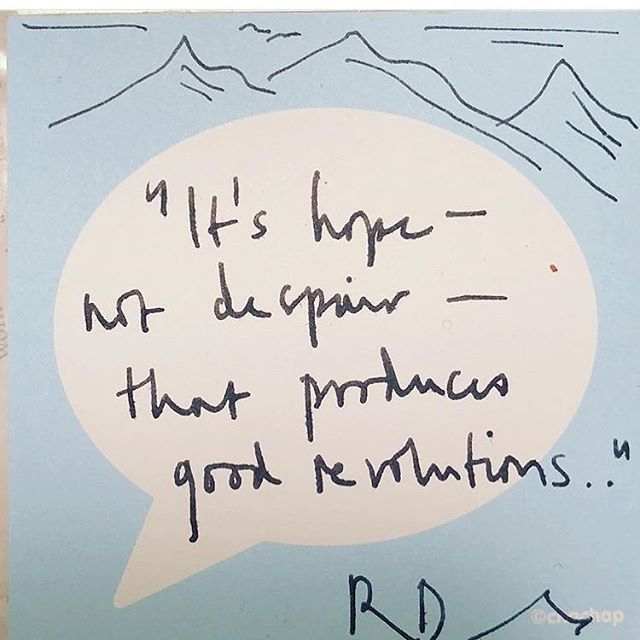 "It's hope —
not despair —
that produces
good revolutions.."
RD